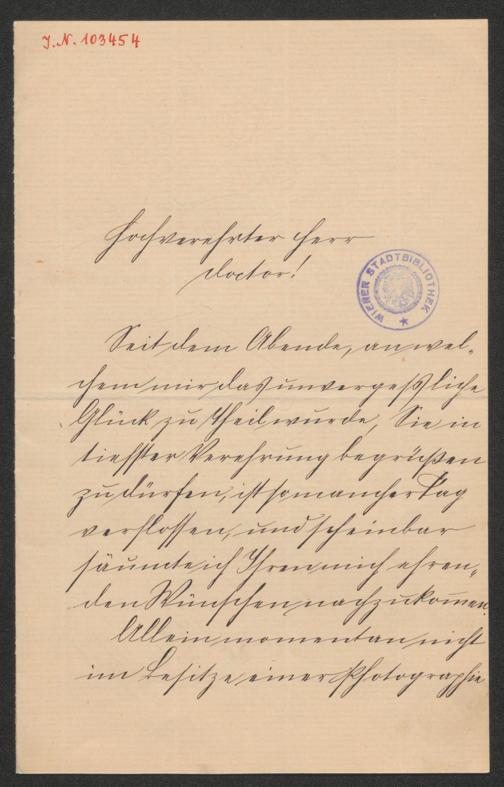 J.N. 103454
Hochverehrter Herr
Doctor!
WIENER STADTBIBLIOTHEK
Seit dem Abende, an wel-
chem mir das unvergeßliche
Glück zu Theil wurde, Sie in
tiefster Verehrung begrüßen
zu dürfen, ist so mancher Tag
verflossen, und scheinbar
säumte ich Ihren mich ehren-
den Wünschen nachzukom̅en.
Allein momentan nicht
im Besitze einer Photographie